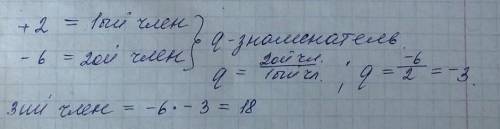 +2 = 1ый член } q-знаменатель
-6 = 2ой член } q = 2ой чл. / 1ый чл. ; q = -6/2 = -3.
3ий член = -6 · -3 = 18